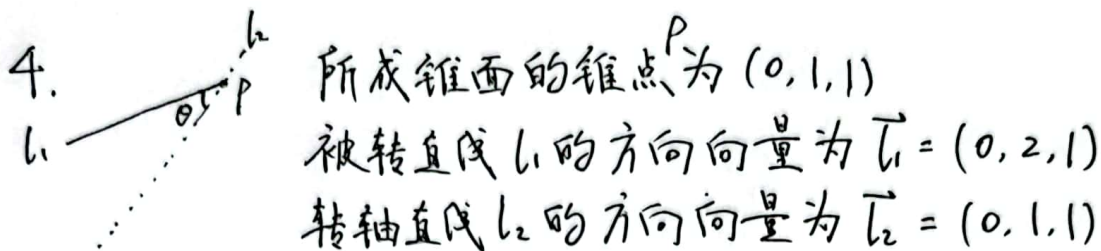 4.
l₂
P
θ
l₁
所成锥面的锥点P为(0,1,1)
被转直线l₁的方向向量为 \vec{l₁} = (0,2,1)
转轴直线l₂的方向向量为 \vec{l₂} = (0,1,1)